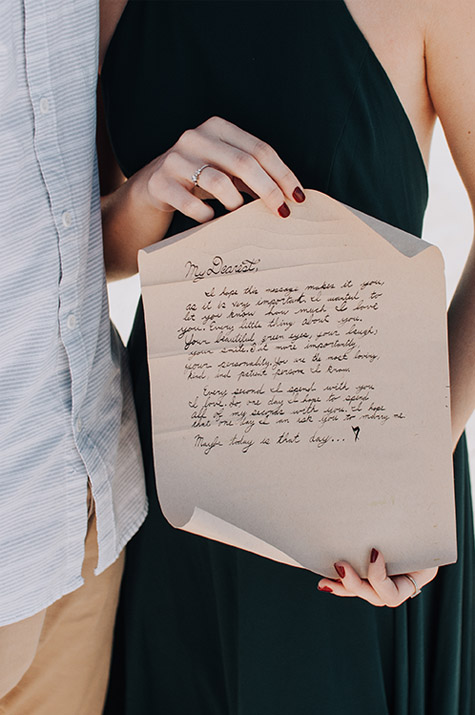 My Dearest,
I hope this message makes it you,
as it is very important. I wanted to
let you know how much I love
you. Every little thing about you.
Your beautiful green eyes, your laugh,
your smile. But more importantly
your personality. You are the most loving,
kind and patient person I know.
Every second I spend with you
I love. So, one day I hope to spend
all of my seconds with you. I hope
that one day I can ask you to marry me.
Maybe today is that day...